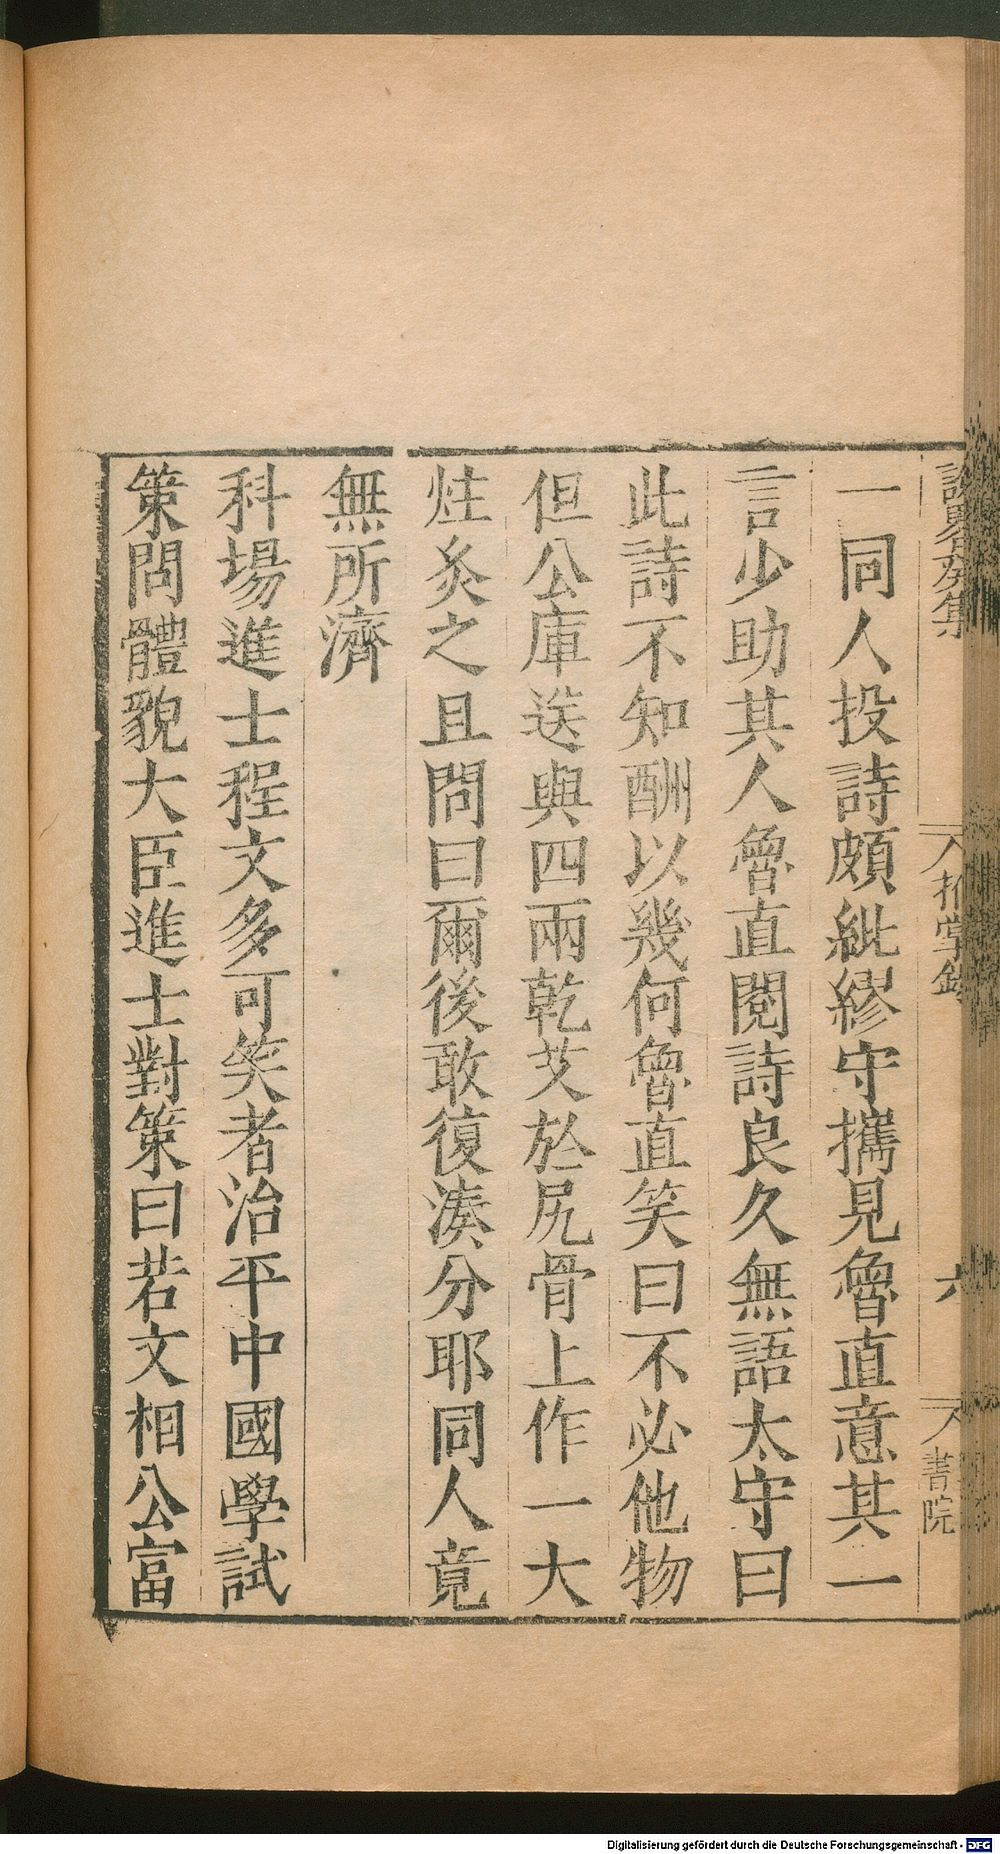 一同人投詩頗紕繆守攜見魯直意其一
言少助其人魯直閱詩良久無語太守曰
此詩不知酬以幾何魯直笑曰不必他物
但公庫送與四兩乾艾於尻骨上作一大
炷灸之且問曰爾後敢復湊分耶同人竟
無所濟
科場進士程文多可笑者治平中國學試
策問體貌大臣進士對策曰若文相公富
拊掌錄
六
書院
Digitalisierung gefördert durch die Deutsche Forschungsgemeinschaft - DFG